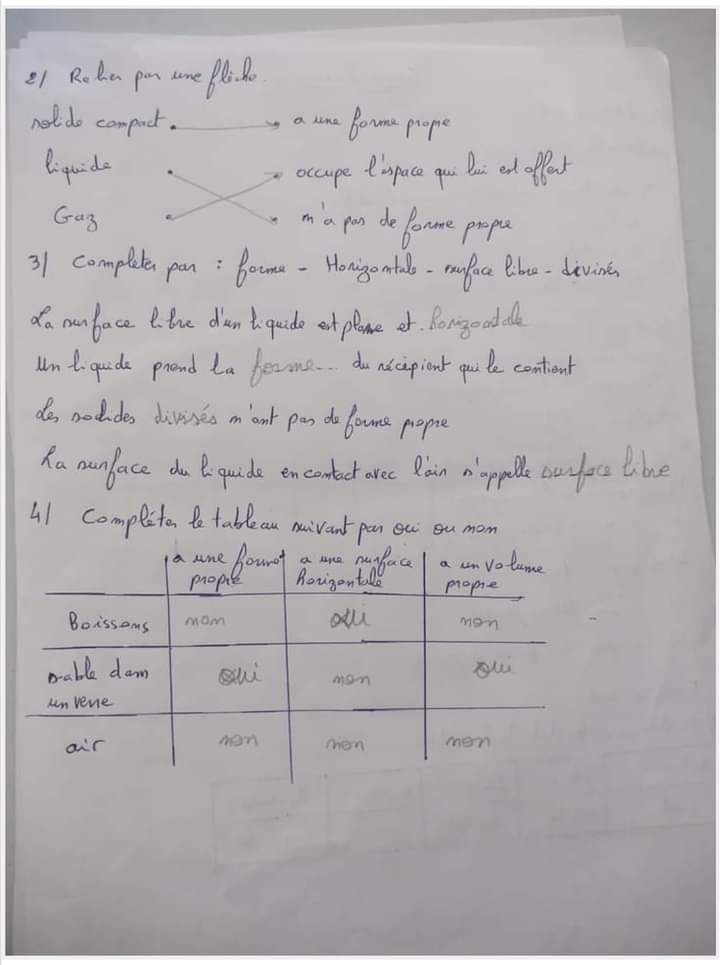 2/ Relier par une flèche.
solide compact . a une forme propre
liquide . occupe l'espace qui lui est offert
Gaz . n'a pas de forme propre
3/ Compléter par : forme - Horizontale - surface libre - divisés
La surface libre d'un liquide est plane et . horizontale
Un liquide prend la forme... du récipient qui le contient
Les solides divisés n'ont pas de forme propre
La surface du liquide en contact avec l'air s'appelle surface libre
4/ Compléter le tableau suivant par oui ou non
a une forme propre a une surface horizontale a un volume propre
Boissons non oui non
sable dans un verre oui non oui
air non non non